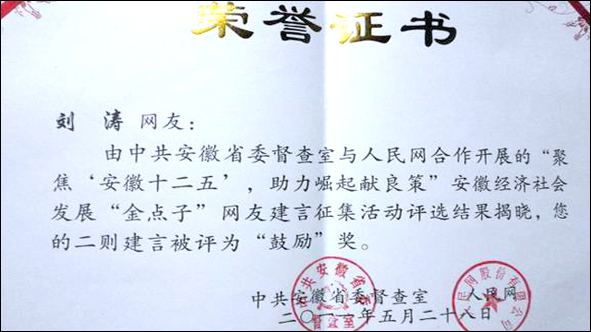 荣誉证书
刘 涛 网友：
由中共安徽省委督查室与人民网合作开展的“聚
焦‘安徽十二五’，助力崛起献良策”安徽经济社会
发展“金点子”网友建言征集活动评选结果揭晓，您
的二则建言被评为“鼓励”奖。
中共安徽省委督查室 人民网
二〇一一年五月二十八日
中共安徽省委
民网股份有限公司